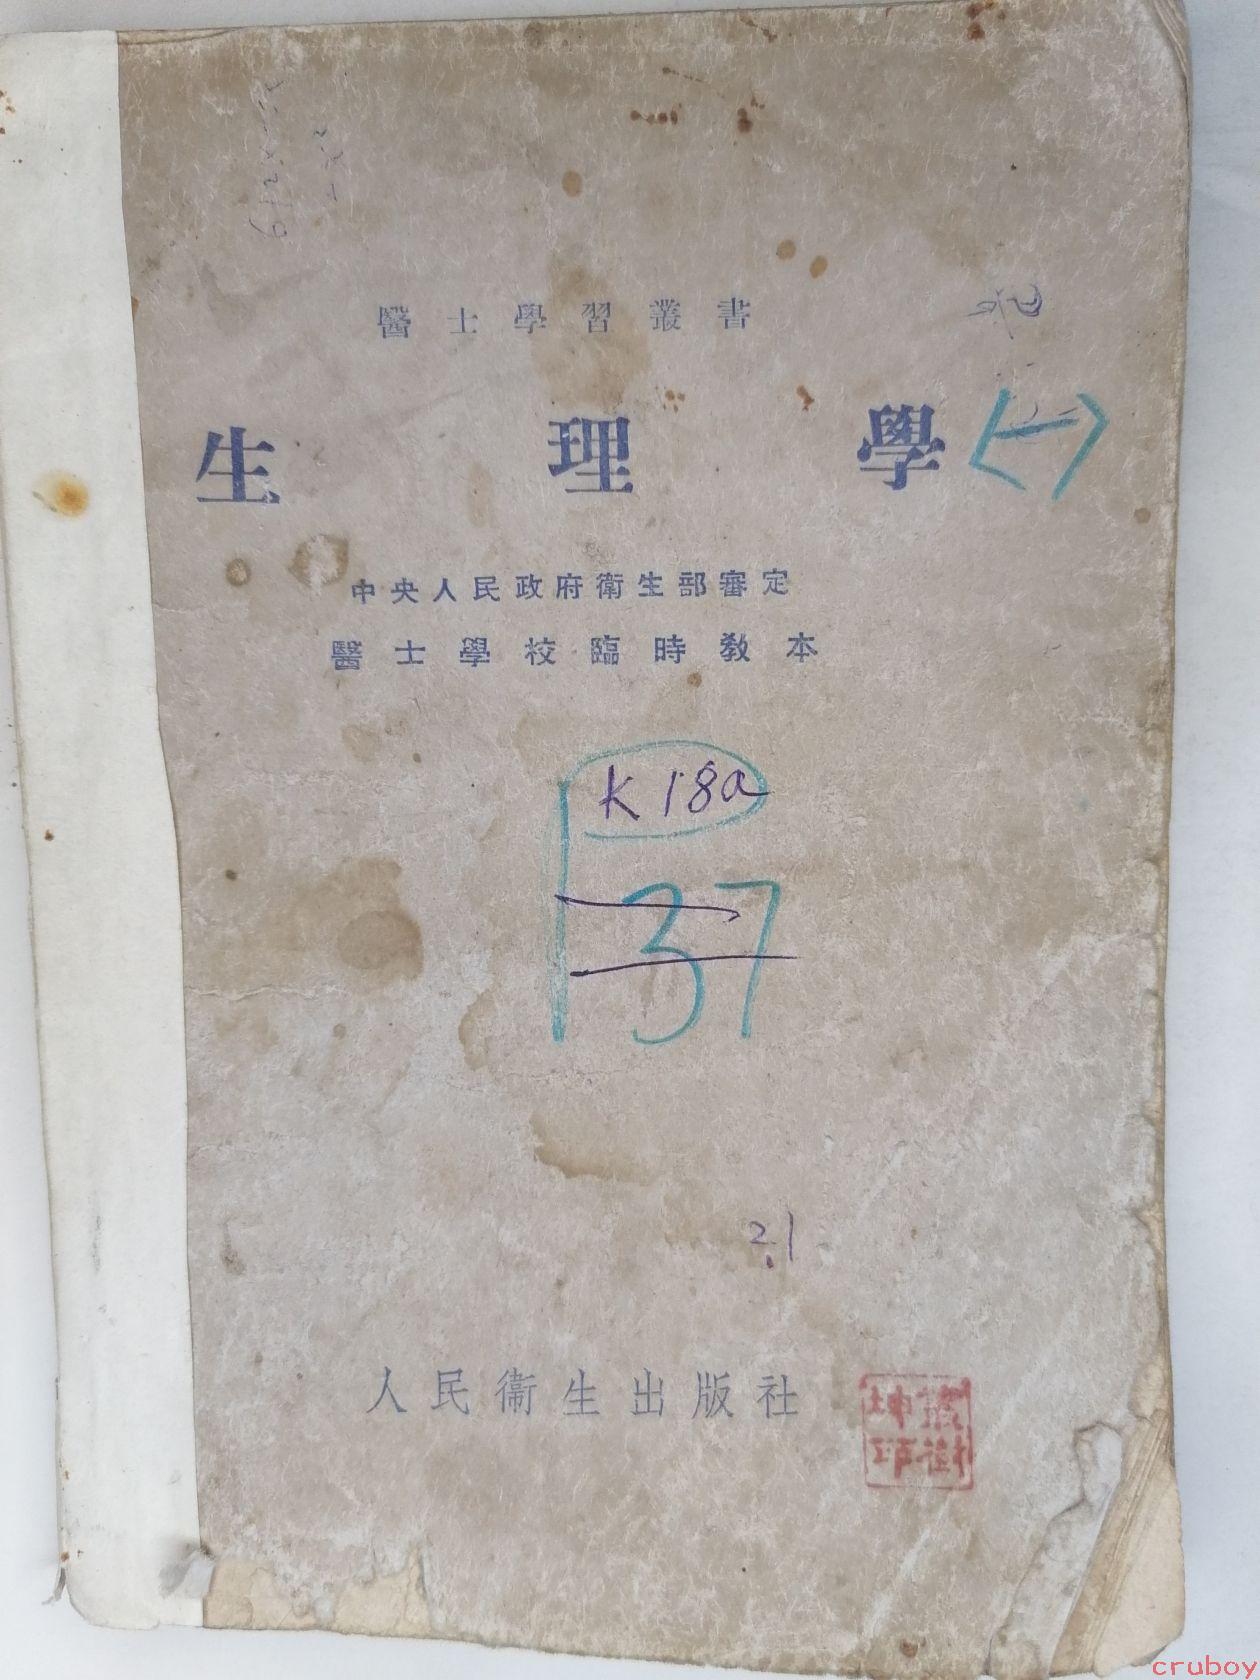 醫士學習叢書
生理學(一)
中央人民政府衛生部審定
醫士學校臨時教本
K18a
37
21
人民衛生出版社
cruboy